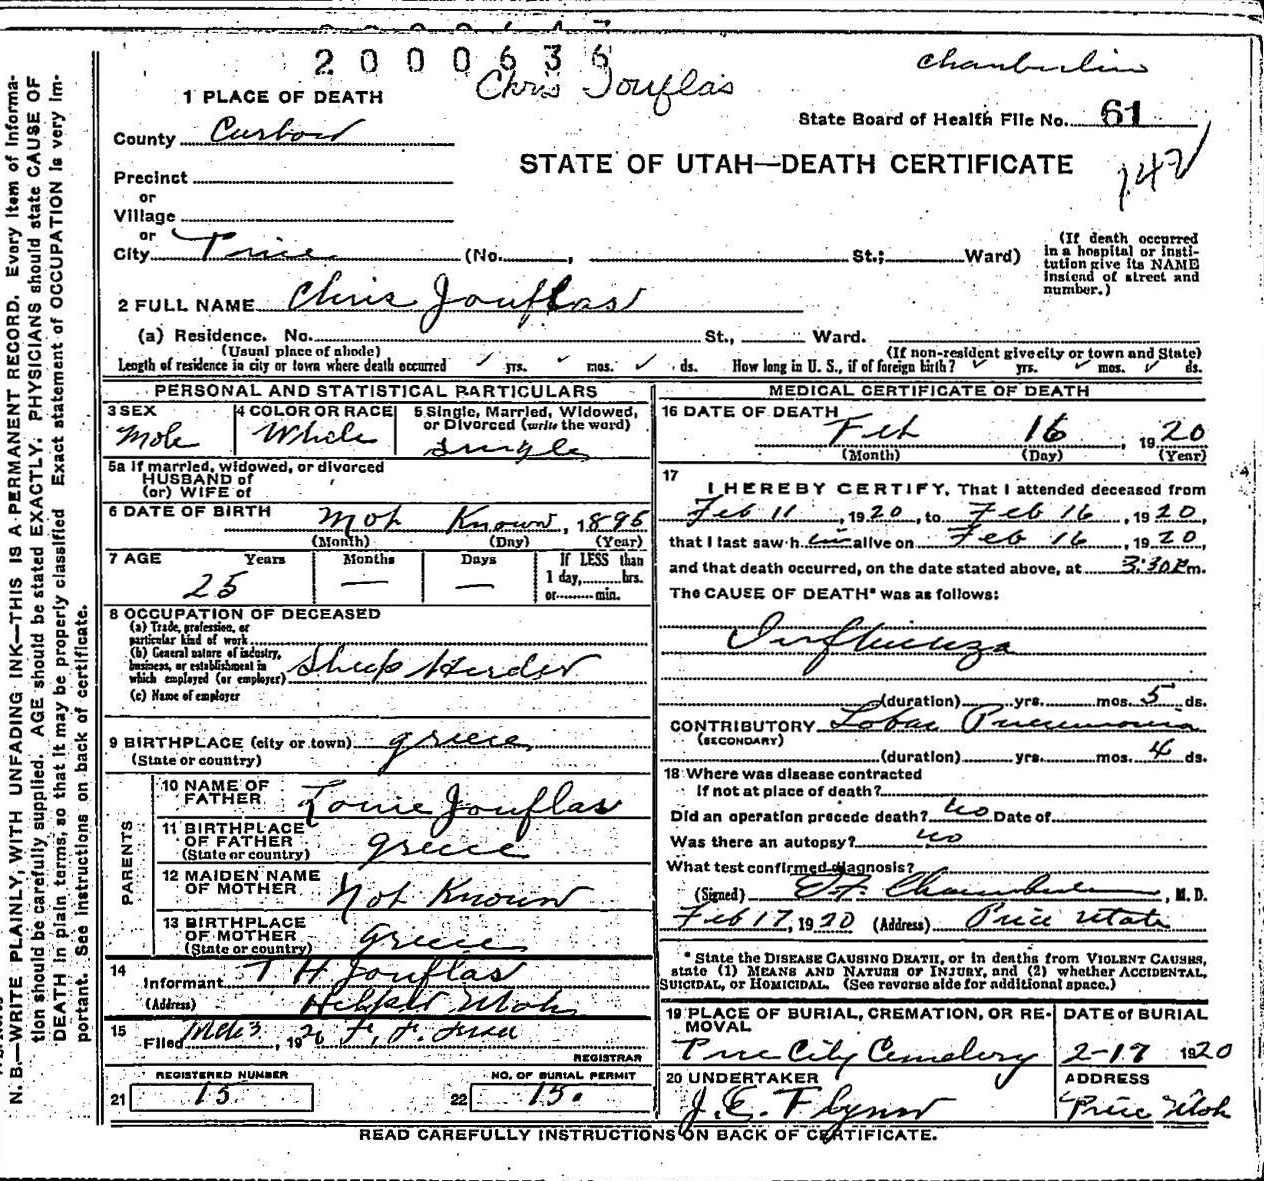 2000636
Chris Jouflas
Chamberlin
1 PLACE OF DEATH
State Board of Health File No. 61
County Carbon
STATE OF UTAH—DEATH CERTIFICATE
142
Precinct
or
Village
or
City Price (No. , St.; Ward)
(If death occurred in a hospital or institution give its NAME instead of street and number.)
2 FULL NAME Chris Jouflas
(a) Residence. No. St., Ward.
(Usual place of abode) (If non-resident give city or town and State)
Length of residence in city or town where death occurred yrs. mos. ds. How long in U. S., if of foreign birth? yrs. mos. ds.
PERSONAL AND STATISTICAL PARTICULARS
3 SEX 4 COLOR OR RACE 5 Single, Married, Widowed, or Divorced (write the word)
Male White Single
5a If married, widowed, or divorced
HUSBAND of
(or) WIFE of
6 DATE OF BIRTH Not Known, 1895
(Month) (Day) (Year)
7 AGE Years Months Days If LESS than
1 day, hrs.
or min.
25 — —
8 OCCUPATION OF DECEASED
(a) Trade, profession, or
particular kind of work
(b) General nature of industry,
business, or establishment in
which employed (or employer) Sheep Herder
(c) Name of employer
9 BIRTHPLACE (city or town) Greece
(State or country)
PARENTS
10 NAME OF
FATHER Louie Jouflas
11 BIRTHPLACE
OF FATHER Greece
(State or country)
12 MAIDEN NAME
OF MOTHER Not Known
13 BIRTHPLACE
OF MOTHER Greece
(State or country)
14 Informant T H Jouflas
(Address) Helper Utah
15 Filed Mch 3, 1920 F. F.
REGISTRAR
REGISTERED NUMBER NO. OF BURIAL PERMIT
21 15 22 15.
MEDICAL CERTIFICATE OF DEATH
16 DATE OF DEATH
Feb 16, 1920
(Month) (Day) (Year)
17 I HEREBY CERTIFY, That I attended deceased from
Feb 11, 1920, to Feb 16, 1920,
that I last saw him alive on Feb 16, 1920,
and that death occurred, on the date stated above, at 3:30 P.m.
The CAUSE OF DEATH* was as follows:
Influenza
(duration) yrs. mos. 5 ds.
CONTRIBUTORY Lobar Pneumonia
(SECONDARY)
(duration) yrs. mos. 4 ds.
18 Where was disease contracted
If not at place of death?
Did an operation precede death? No Date of
Was there an autopsy? No
What test confirmed diagnosis?
(Signed) E.F. Chamberlin, M. D.
Feb 17, 1920 (Address) Price Utah
* State the DISEASE CAUSING DEATH, or in deaths from VIOLENT CAUSES,
state (1) MEANS AND NATURE OF INJURY, and (2) whether ACCIDENTAL,
SUICIDAL, or HOMICIDAL. (See reverse side for additional space.)
19 PLACE OF BURIAL, CREMATION, OR REMOVAL DATE of BURIAL
Price City Cemetery 2-17 1920
20 UNDERTAKER ADDRESS
J. E. Flynn Price Utah
READ CAREFULLY INSTRUCTIONS ON BACK OF CERTIFICATE.
N. B.—WRITE PLAINLY, WITH UNFADING INK—THIS IS A PERMANENT RECORD. Every item of informa-
tion should be carefully supplied. AGE should be stated EXACTLY. PHYSICIANS should state CAUSE OF
DEATH in plain terms, so that it may be properly classified. Exact statement of OCCUPATION is very im-
portant. See instructions on back of certificate.